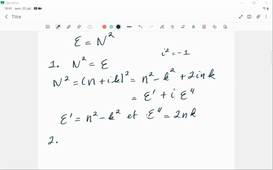 Titre
ε = N²
i² = -1
1. N² = ε
N² = (n + ik)² = n² - k² + 2ink
= ε' + i ε"
ε' = n² - k² et ε" = 2nk
2.